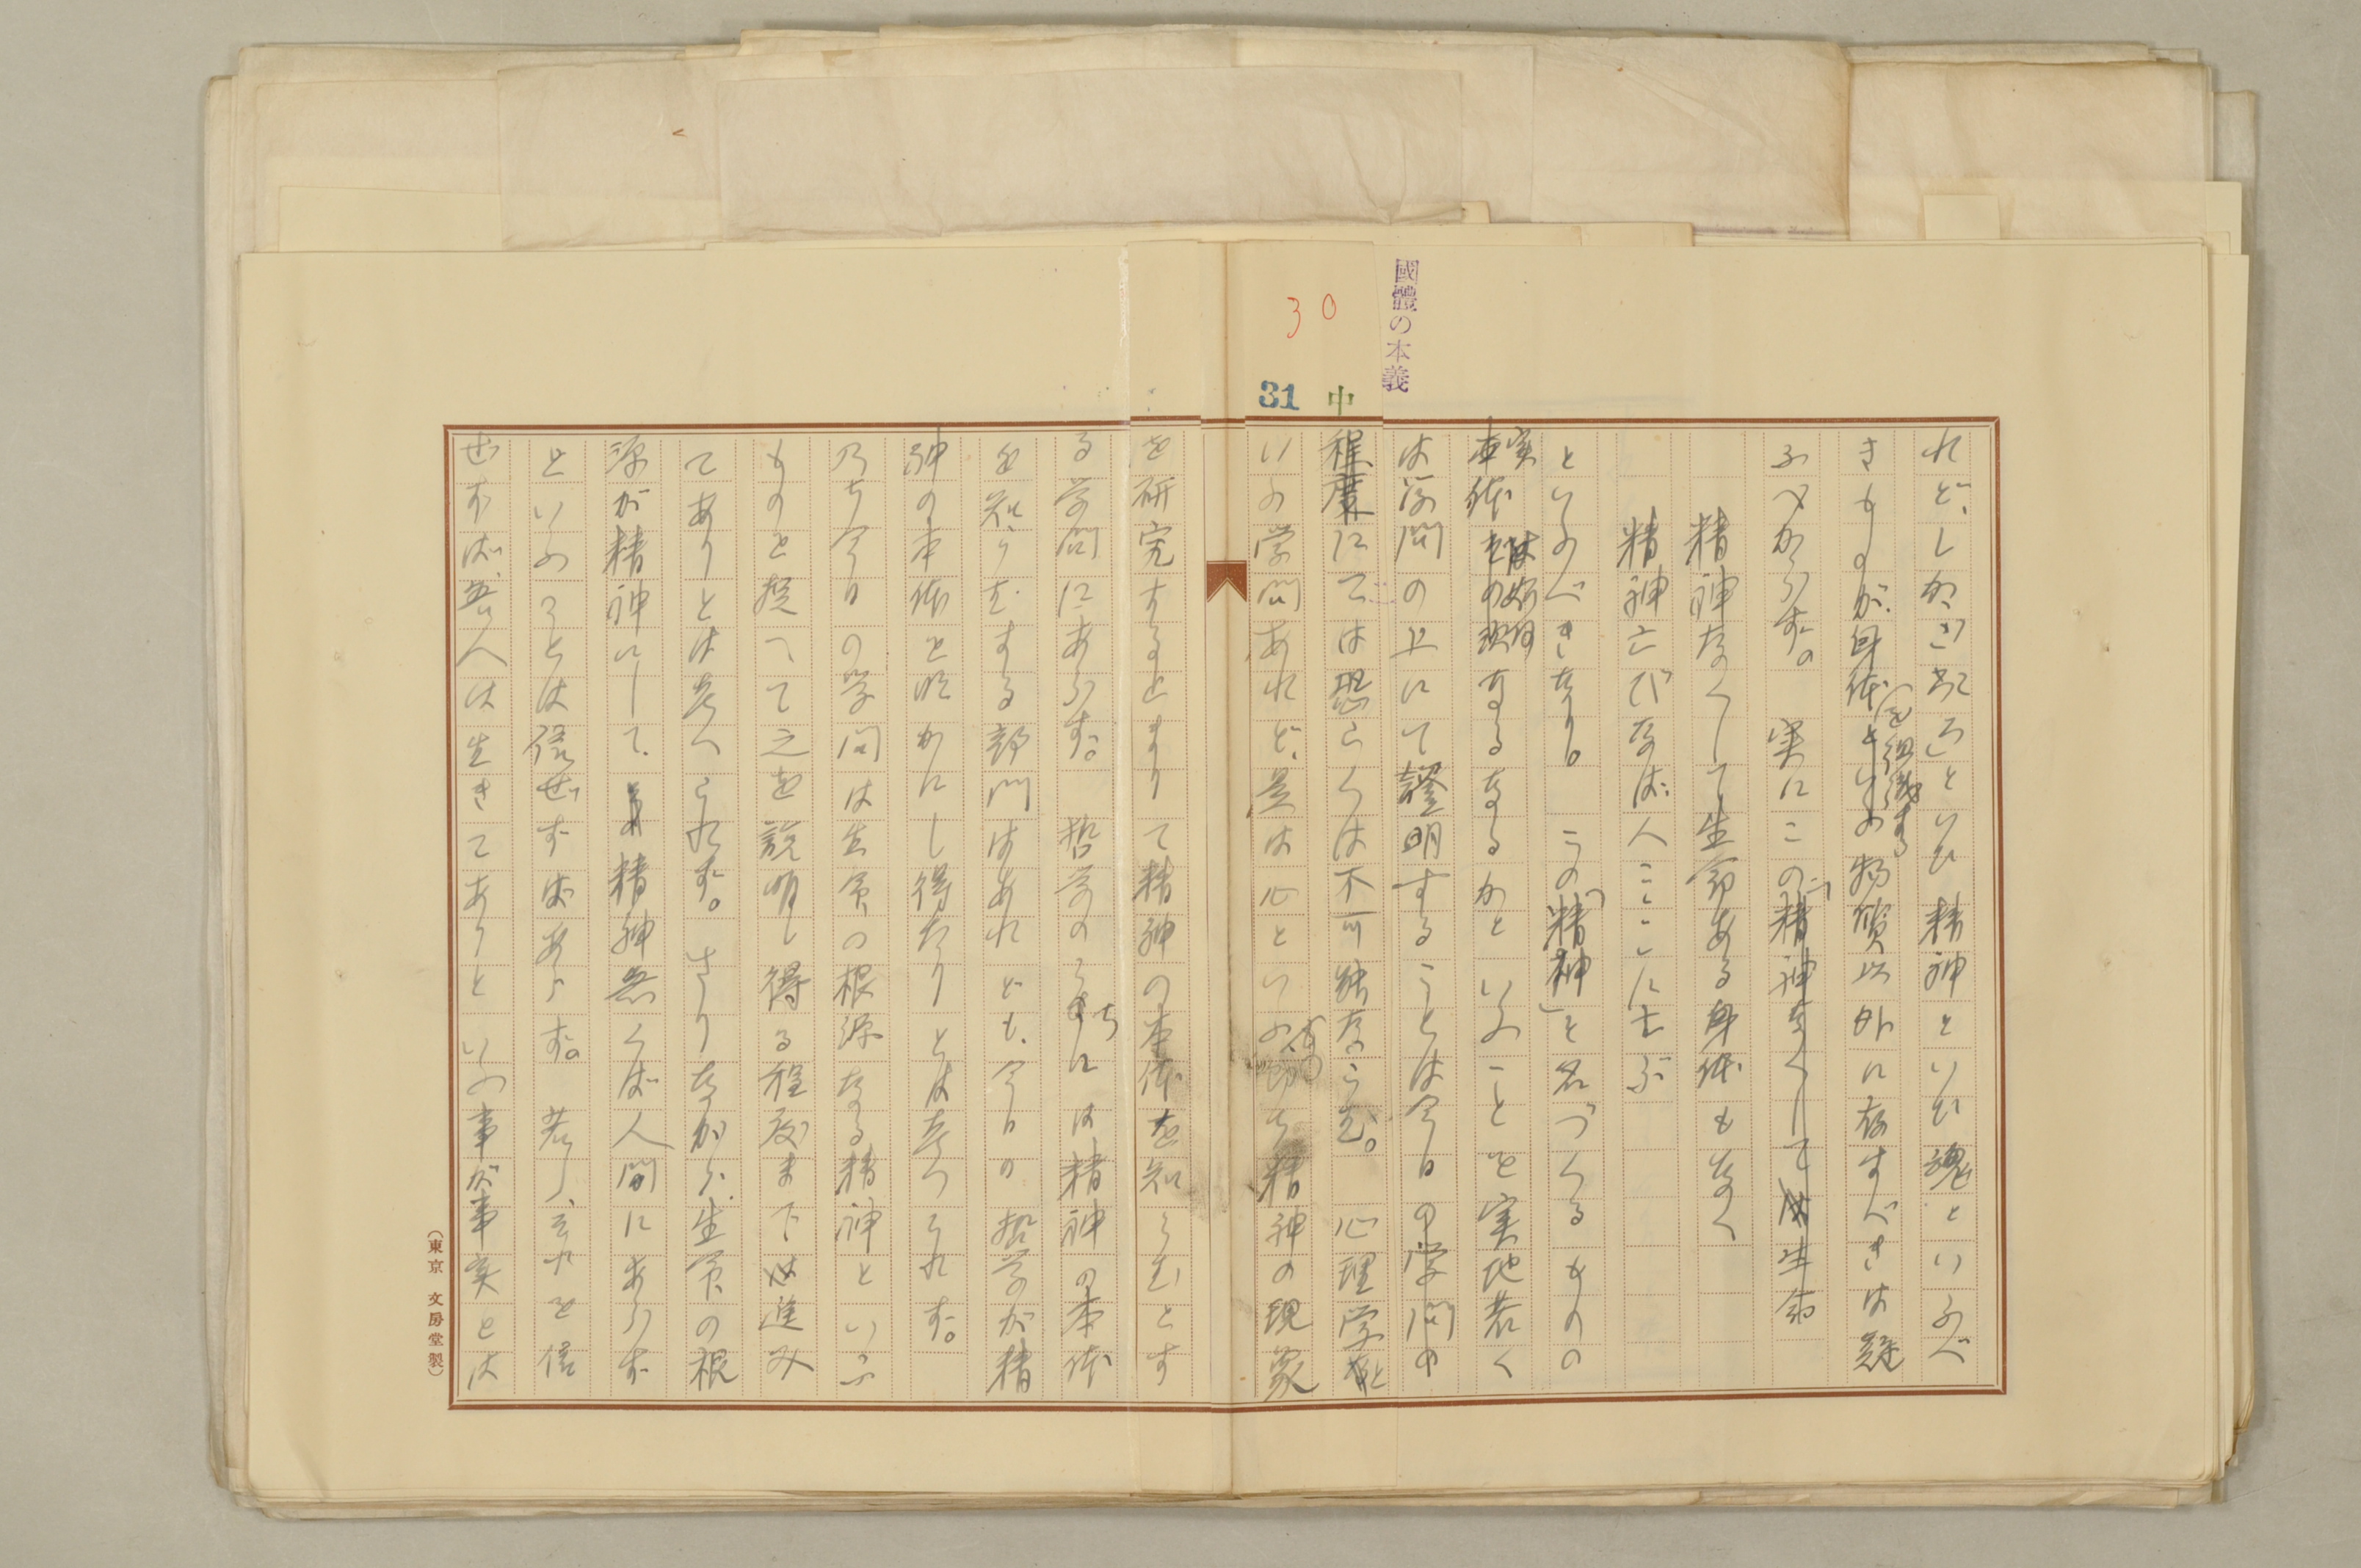 國體の本義
30
31
中
れど、しかどころといひ精神といひ魂といふべ
きものが身体を組織する物質以外に存すべきは疑
ふべからず。実にこの「精神なくしては生命
精神なくして生命ある身体もなく
精神亡びなば人ここに亡ぶ
といふべきなり。この「精神」と名づくるものの
実体は如何なるなるかといふことを実地若く
は学問の上にて證明することは今日の学問の
程度にては恐らくは不可能ならむ。心理学と
いふ学問あれど、是は心といふ精神の現象
を研究するに止まりて精神の本体を知らむとす
る学問にあらず。哲学のうちには精神の本体
を知らむとする部門はあれども、今日の哲学が精
神の本体を明かにし得たりとは考へられず。
乃ち今日の学問は生命の根源なる精神といふ
ものを捉へて之を説明し得る程度まで進み
てありとは考へられず。さりながら生命の根
源が精神にして、精神無くば人間にあらず
といふことは信ぜずばあらず。若し、それを信
ぜずば、吾人は生きてありといふ事が事実とは
(東京 文房堂製)